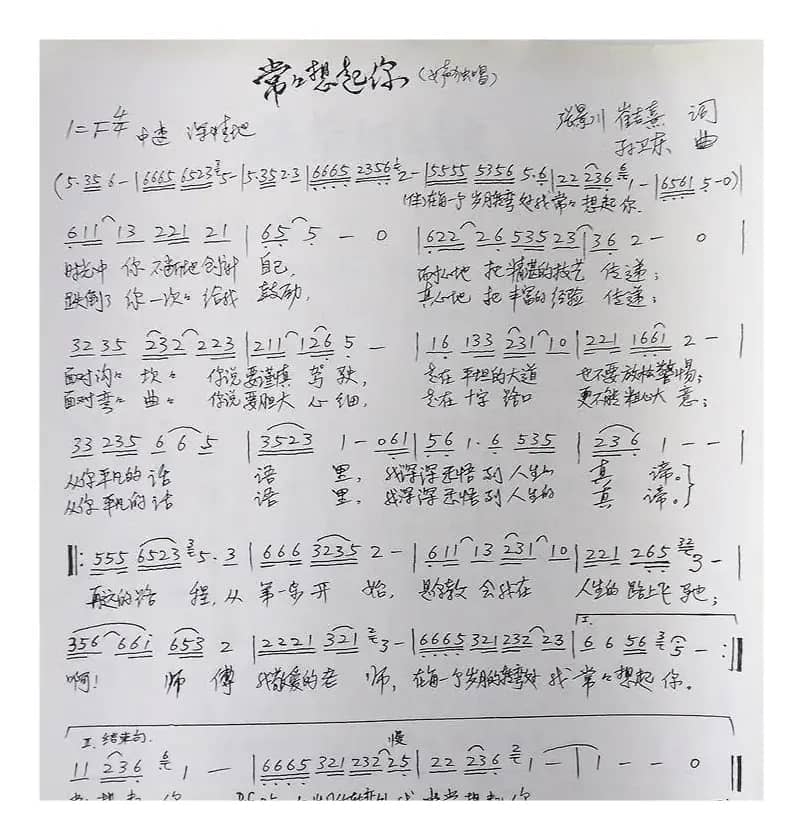 常常想起你 (女声独唱)
1=F 4/4 中速 深情地
张景川 崔吉熹 词
孙卫东 曲
(5·35 6- | 6665 6523 5- | 5·35 2·3 | 6665 2356 2- | 5555 5356 5·6 | 22 236 1- | 6561 5-0)
在每一个岁月的转弯处我常常想起你.
611 13 221 21 | 65 5 - 0 | 622 26 535 23 | 36 2 - 0 |
时光中 你不断地 自己, 地 把精湛的技艺 传递;
跌倒了 你一次次 给我 鼓励, 真心地 把丰富的经验 传递;
32 35 232 223 | 211 126 5 - | 16 133 231 10 | 221 1661 2 - |
面对沟沟 坎坎 你说要谨慎 驾驶, 走在 平坦的大道 也不要放松警惕;
面对弯弯 曲曲 你说要胆大 心细, 走在 十字 路口 更不能粗心大 意;
33 235 6 6 5 | 3523 1 - 061 | 56 1·6 535 | 236 1 - - |
从你平凡的话 语 里, 我深深 悟到人生 真 谛.
从你平凡的话 语 里, 我深深 悟到人生的 真 谛.
555 6523 5·3 | 666 3235 2 - | 611 13 231 10 | 221 265 3 - |
再远的路 程,从 第一步开 始, 是你教 会我在 人生的 路上飞 驰;
356 661 653 2 | 2221 321 3 - | 6665 321 232 23 | 6 6 56 5 - :‖
啊! 师 傅 我敬爱的老 师, 在每一个岁月的转弯处 我 常常想起 你.
II. 结束句. 慢
11 236 1 — | 6665 321 232 25 | 22 236 1 - | 1 - - 0 ‖